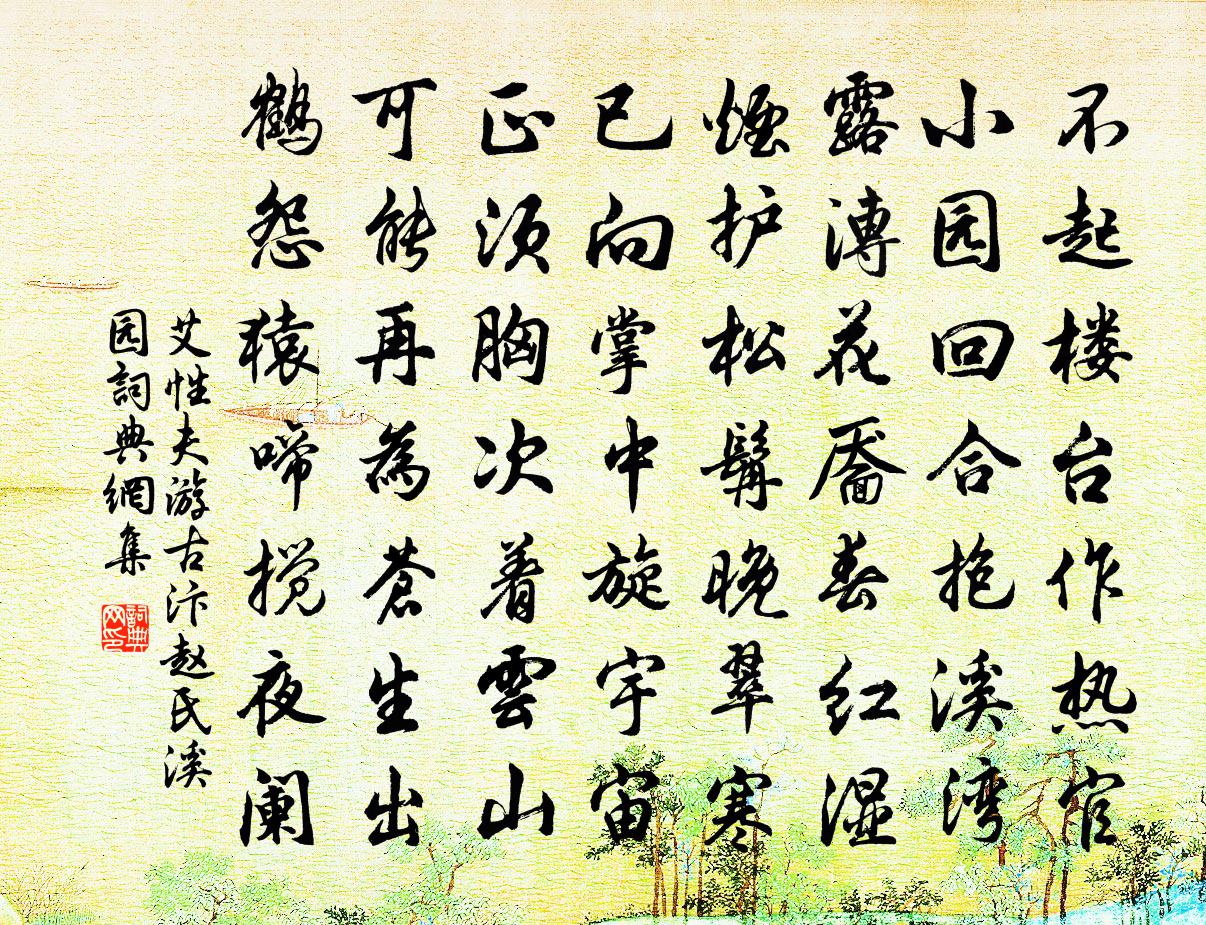 不起楼台作热官
小园回合抱溪湾
露漙花靥春红湿
煙护松髯晚翠寒
已向掌中旋宇宙
正须胸次着雲山
可能再為蒼生出
鶴怨猿啼搅夜阑
艾性夫游古汴赵氏溪
园詞典網集
詞典
网印